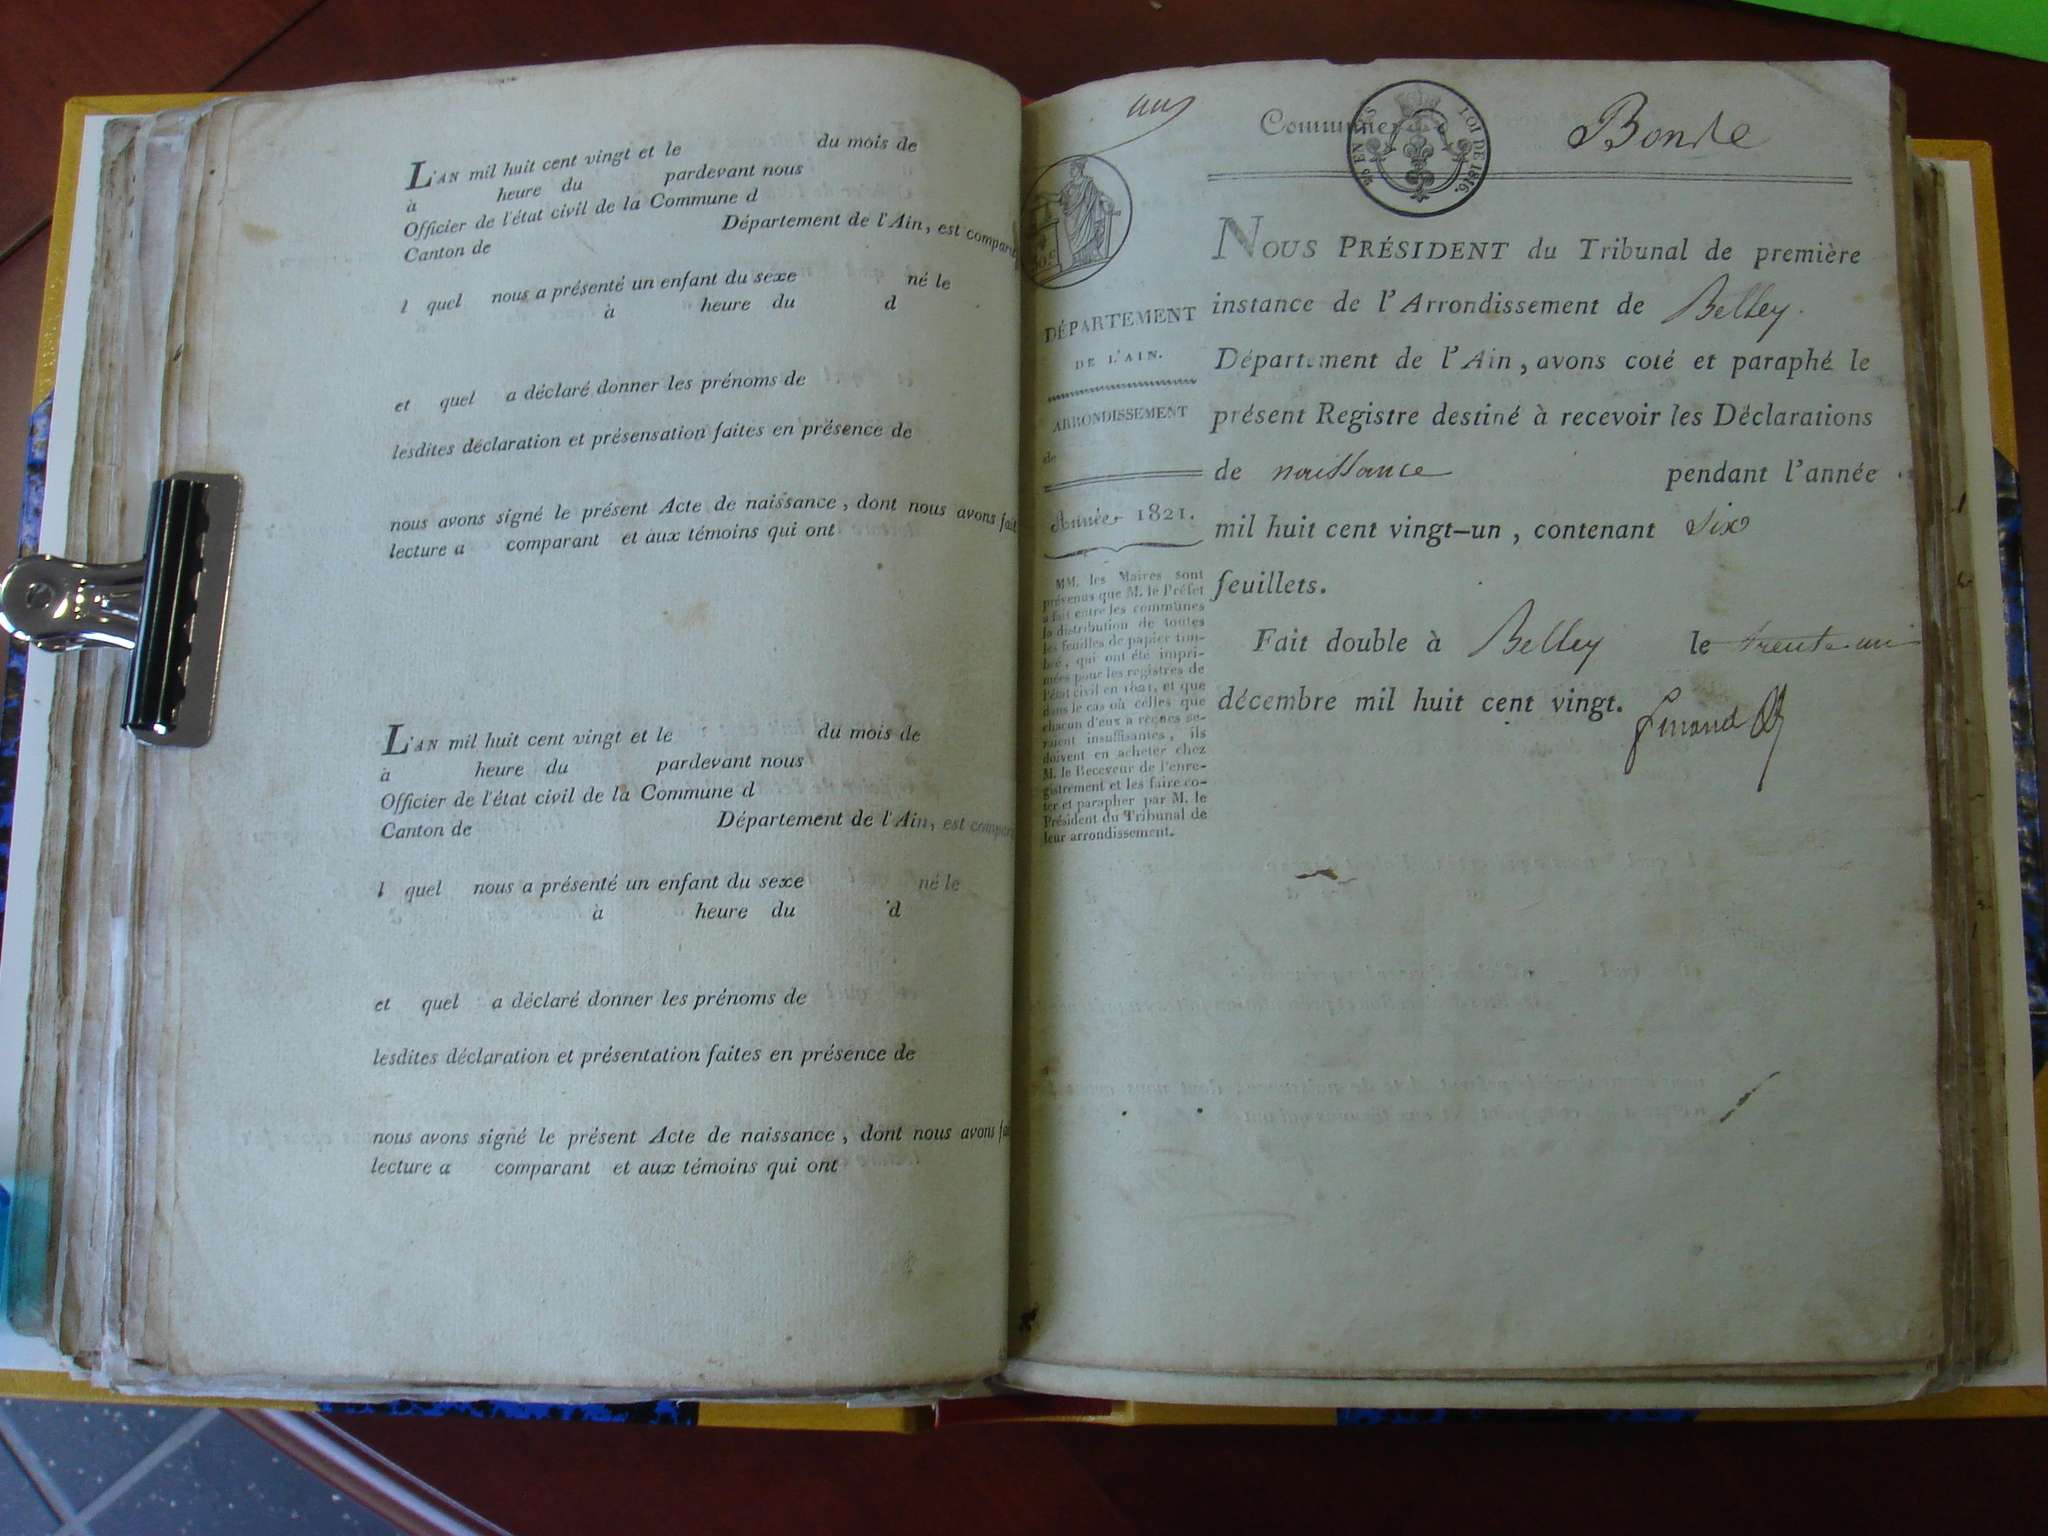 L'AN mil huit cent vingt et le du mois de
à heure du pardevant nous
Officier de l'état civil de la Commune d
Canton de Département de l'Ain, est compar
l quel nous a présenté un enfant du sexe né le
à heure du d
et quel a déclaré donner les prénoms de
lesdites déclaration et présensation faites en présence de
nous avons signé le présent Acte de naissance, dont nous avons fait
lecture a comparant et aux témoins qui ont
L'AN mil huit cent vingt et le du mois de
à heure du pardevant nous
Officier de l'état civil de la Commune d
Canton de Département de l'Ain, est compar
l quel nous a présenté un enfant du sexe né le
à heure du d
et quel a déclaré donner les prénoms de
lesdites déclaration et présentation faites en présence de
nous avons signé le présent Acte de naissance, dont nous avons fa
lecture a comparant et aux témoins qui ont
LOI DE 1816.
DÉPARTEMENT
DE L'AIN.
ARRONDISSEMENT
de
Année 1821.
MM. les Maires sont
prévenus que M. le Préfet
a fait entre les communes
la distribution de toutes
les feuilles de papier tim-
bré, qui ont été impri-
mées pour les registres de
l'état civil en 1821, et que
dans le cas où celles que
chacun d'eux a reçues se-
raient insuffisantes, ils
doivent en acheter chez
M. le Receveur de l'enre-
gistrement et les faire co-
ter et parapher par M. le
Président du Tribunal de
leur arrondissement.
Commune
NOUS PRÉSIDENT du Tribunal de première
instance de l'Arrondissement de Belley.
Département de l'Ain, avons coté et paraphé le
présent Registre destiné à recevoir les Déclarations
de naissance pendant l'année
mil huit cent vingt-un, contenant Six
feuillets.
Fait double à Belley le trente un
décembre mil huit cent vingt.